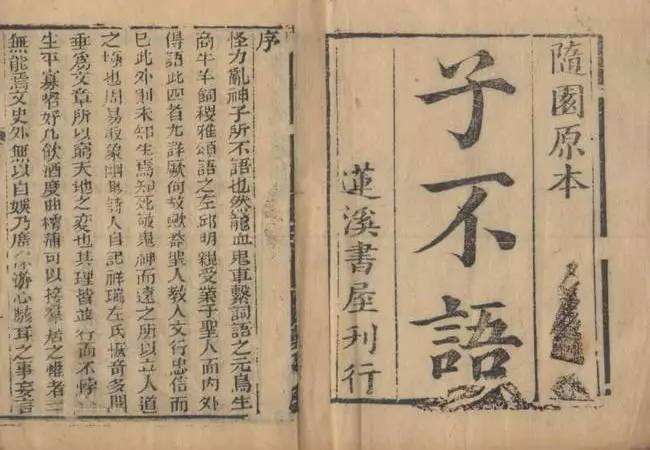 隨園原本
子不語
蓮溪書屋刊行
序
怪力亂神子所不語也然龍血鬼車繫詞語之元鳥生
商牛羊飼稷雅頌語之左邱明親受業于聖人而內外
傳語此四者尤詳厥何故歟蓋聖人教人文行忠信而
已此外則未知生焉知死敬鬼神而遠之所以立人道
之極也周易取象幽眇詩人自記祥瑞左氏恢奇多聞
垂為文章所以窮天地之變也其理皆並行而不悖
生平寡嗜好凡飲酒度曲樗蒲可以接羣居之權者一
無能焉文史外無以自娛乃廣采游心駭耳之事妄言